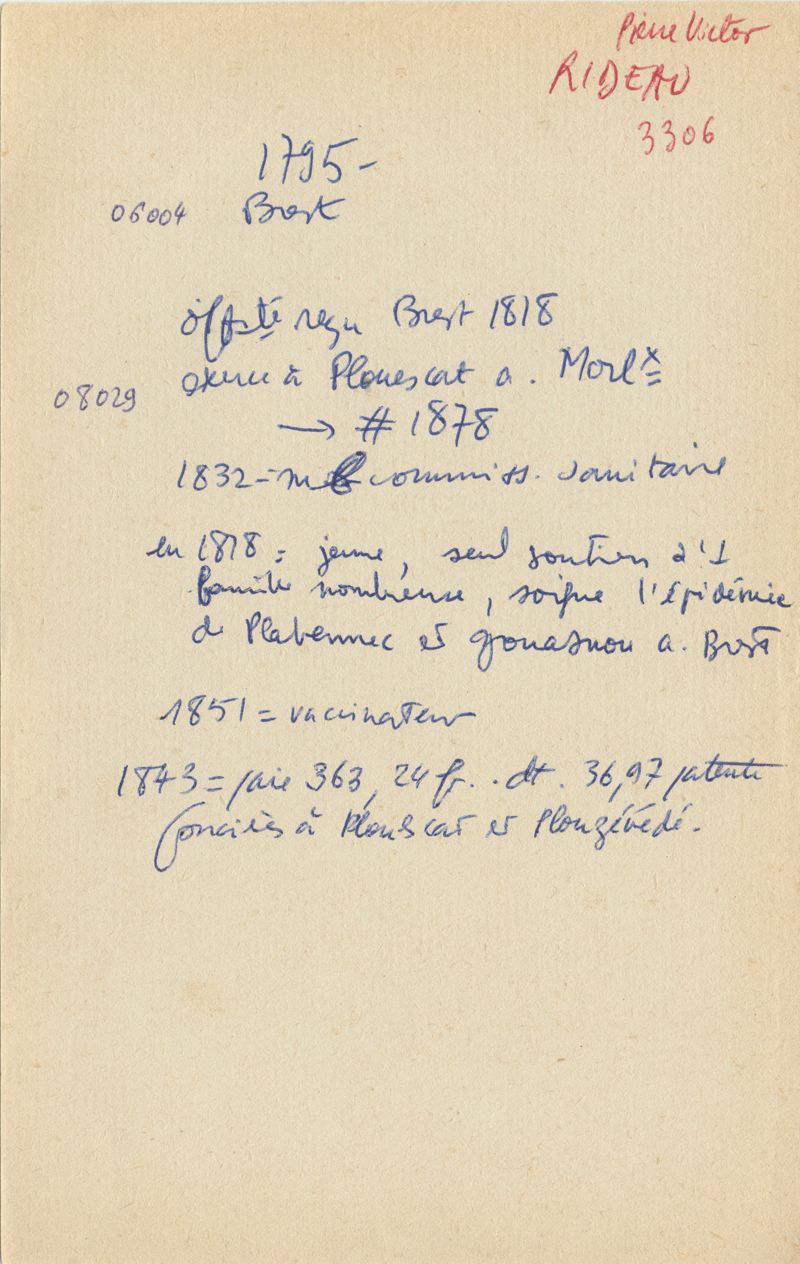 Pierre Victor
RIDEAU
3306
1795-
06004 Brest
off sté reçu Brest 1818
08029 exerce à Plouescat a. Morlx
→ # 1878
1832 = m commiss. sanitaire
en 1818 = jeune, seul soutien d'1
famille nombreuse, soigne l'épidémie
de Plabennec et Gouesnou a. Brest
1851 = vaccinateur
1843 = paie 363,24 fr. dt. 36,97 patente
foncières à Plouescat et Plougévédé.